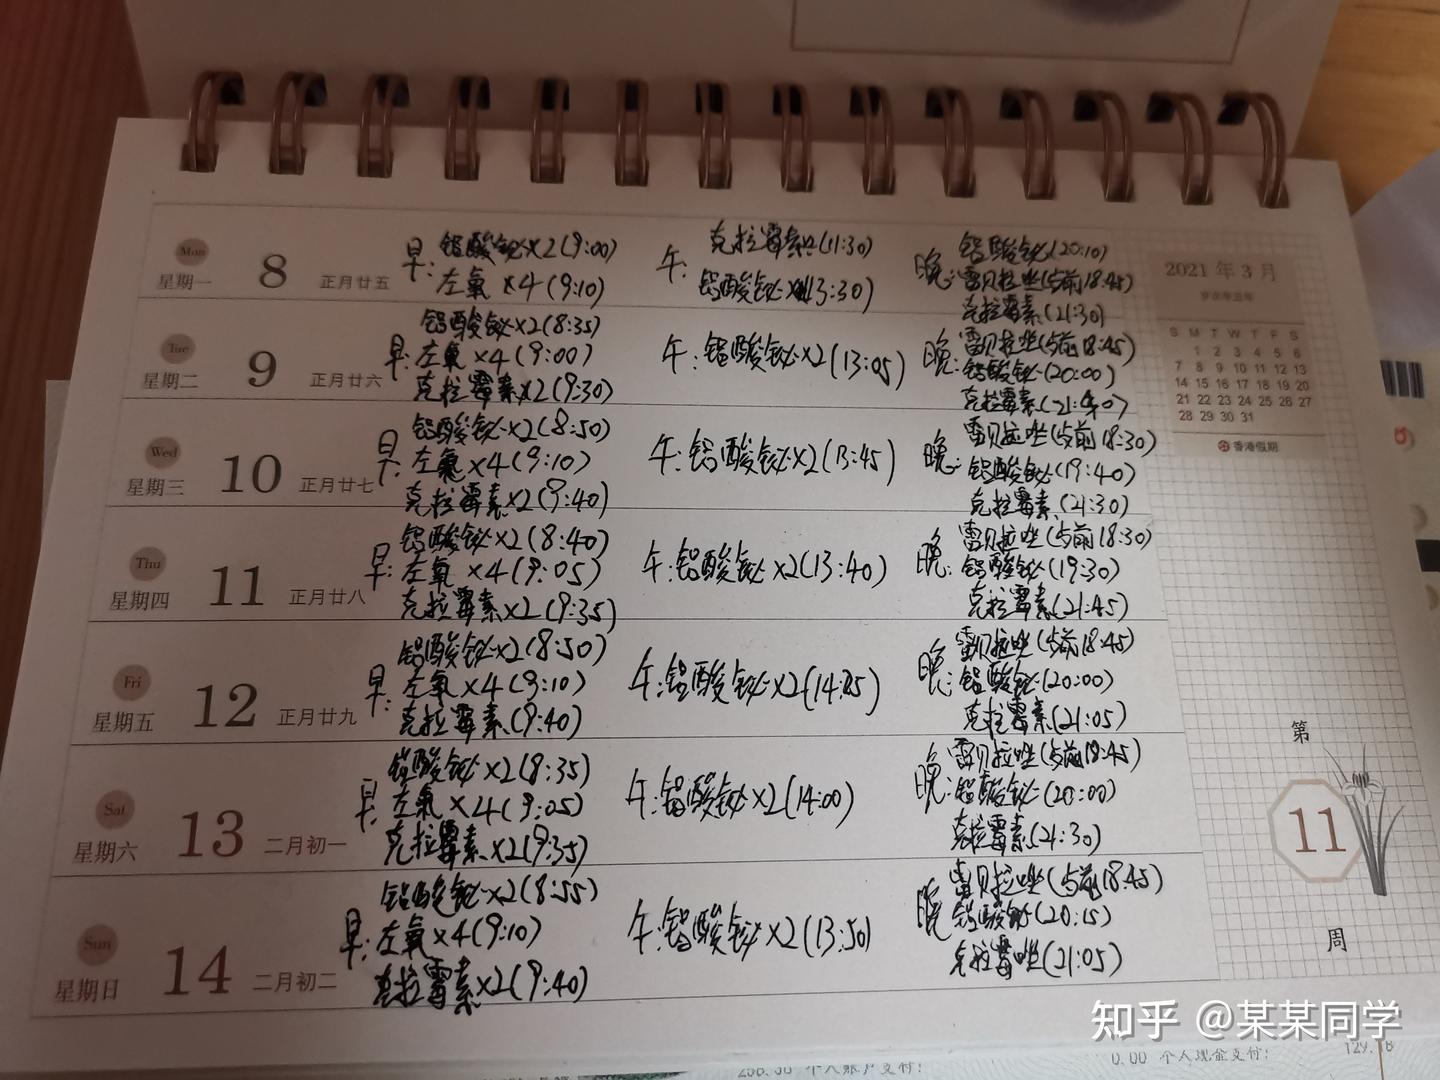 Mon
星期一 8 正月廿五
早: 铝酸铋×2(9:00)
左氧 ×4(9:10)
午: 克拉霉素(11:30)
铝酸铋(13:30)
晚: 铝酸铋(20:10)
雷贝拉唑(占前18:45)
克拉霉素(21:30)
Tue
星期二 9 正月廿六
早: 铝酸铋×2(8:35)
左氧×4(9:00)
克拉霉素×2(9:30)
午: 铝酸铋×2(13:05)
晚: 雷贝拉唑(占前18:45)
铝酸铋(20:00)
克拉霉素(21:40)
Wed
星期三 10 正月廿七
早: 铝酸铋×2(8:50)
左氧×4(9:10)
克拉霉素×2(9:40)
午: 铝酸铋×2(13:45)
晚: 雷贝拉唑(占前18:30)
铝酸铋(19:40)
克拉霉素(21:30)
Thu
星期四 11 正月廿八
早: 铝酸铋×2(8:40)
左氧 ×4(9:05)
克拉霉素×2(9:35)
午: 铝酸铋×2(13:40)
晚: 雷贝拉唑(占前18:30)
铝酸铋(19:30)
克拉霉素(21:45)
Fri
星期五 12 正月廿九
早: 铝酸铋×2(8:50)
左氧×4(9:10)
克拉霉素(9:40)
午: 铝酸铋×2
晚: 雷贝拉唑(占前18:45)
铝酸铋(20:00)
克拉霉素(21:05)
Sat
星期六 13 二月初一
早: 铝酸铋×2(8:35)
左氧×4(9:05)
克拉霉素×2(9:35)
午: 铝酸铋×2(14:00)
晚: 雷贝拉唑(占前18:45)
铝酸铋(20:00)
克拉霉素(21:30)
Sun
星期日 14 二月初二
早: 铝酸铋×2(8:55)
左氧×4(9:10)
克拉霉素×2(9:40)
午: 铝酸铋×2(13:50)
晚: 雷贝拉唑(占前18:45)
铝酸铋(20:15)
克拉霉唑(21:05)
2021 年 3 月
岁次辛丑年
S M T W T F S
1 2 3 4 5 6
7 8 9 10 11 12 13
14 15 16 17 18 19 20
21 22 23 24 25 26 27
28 29 30 31
香港假期
第
11
周
知乎 @某某同学
个人账户支付:
0.00 个人现金支付: